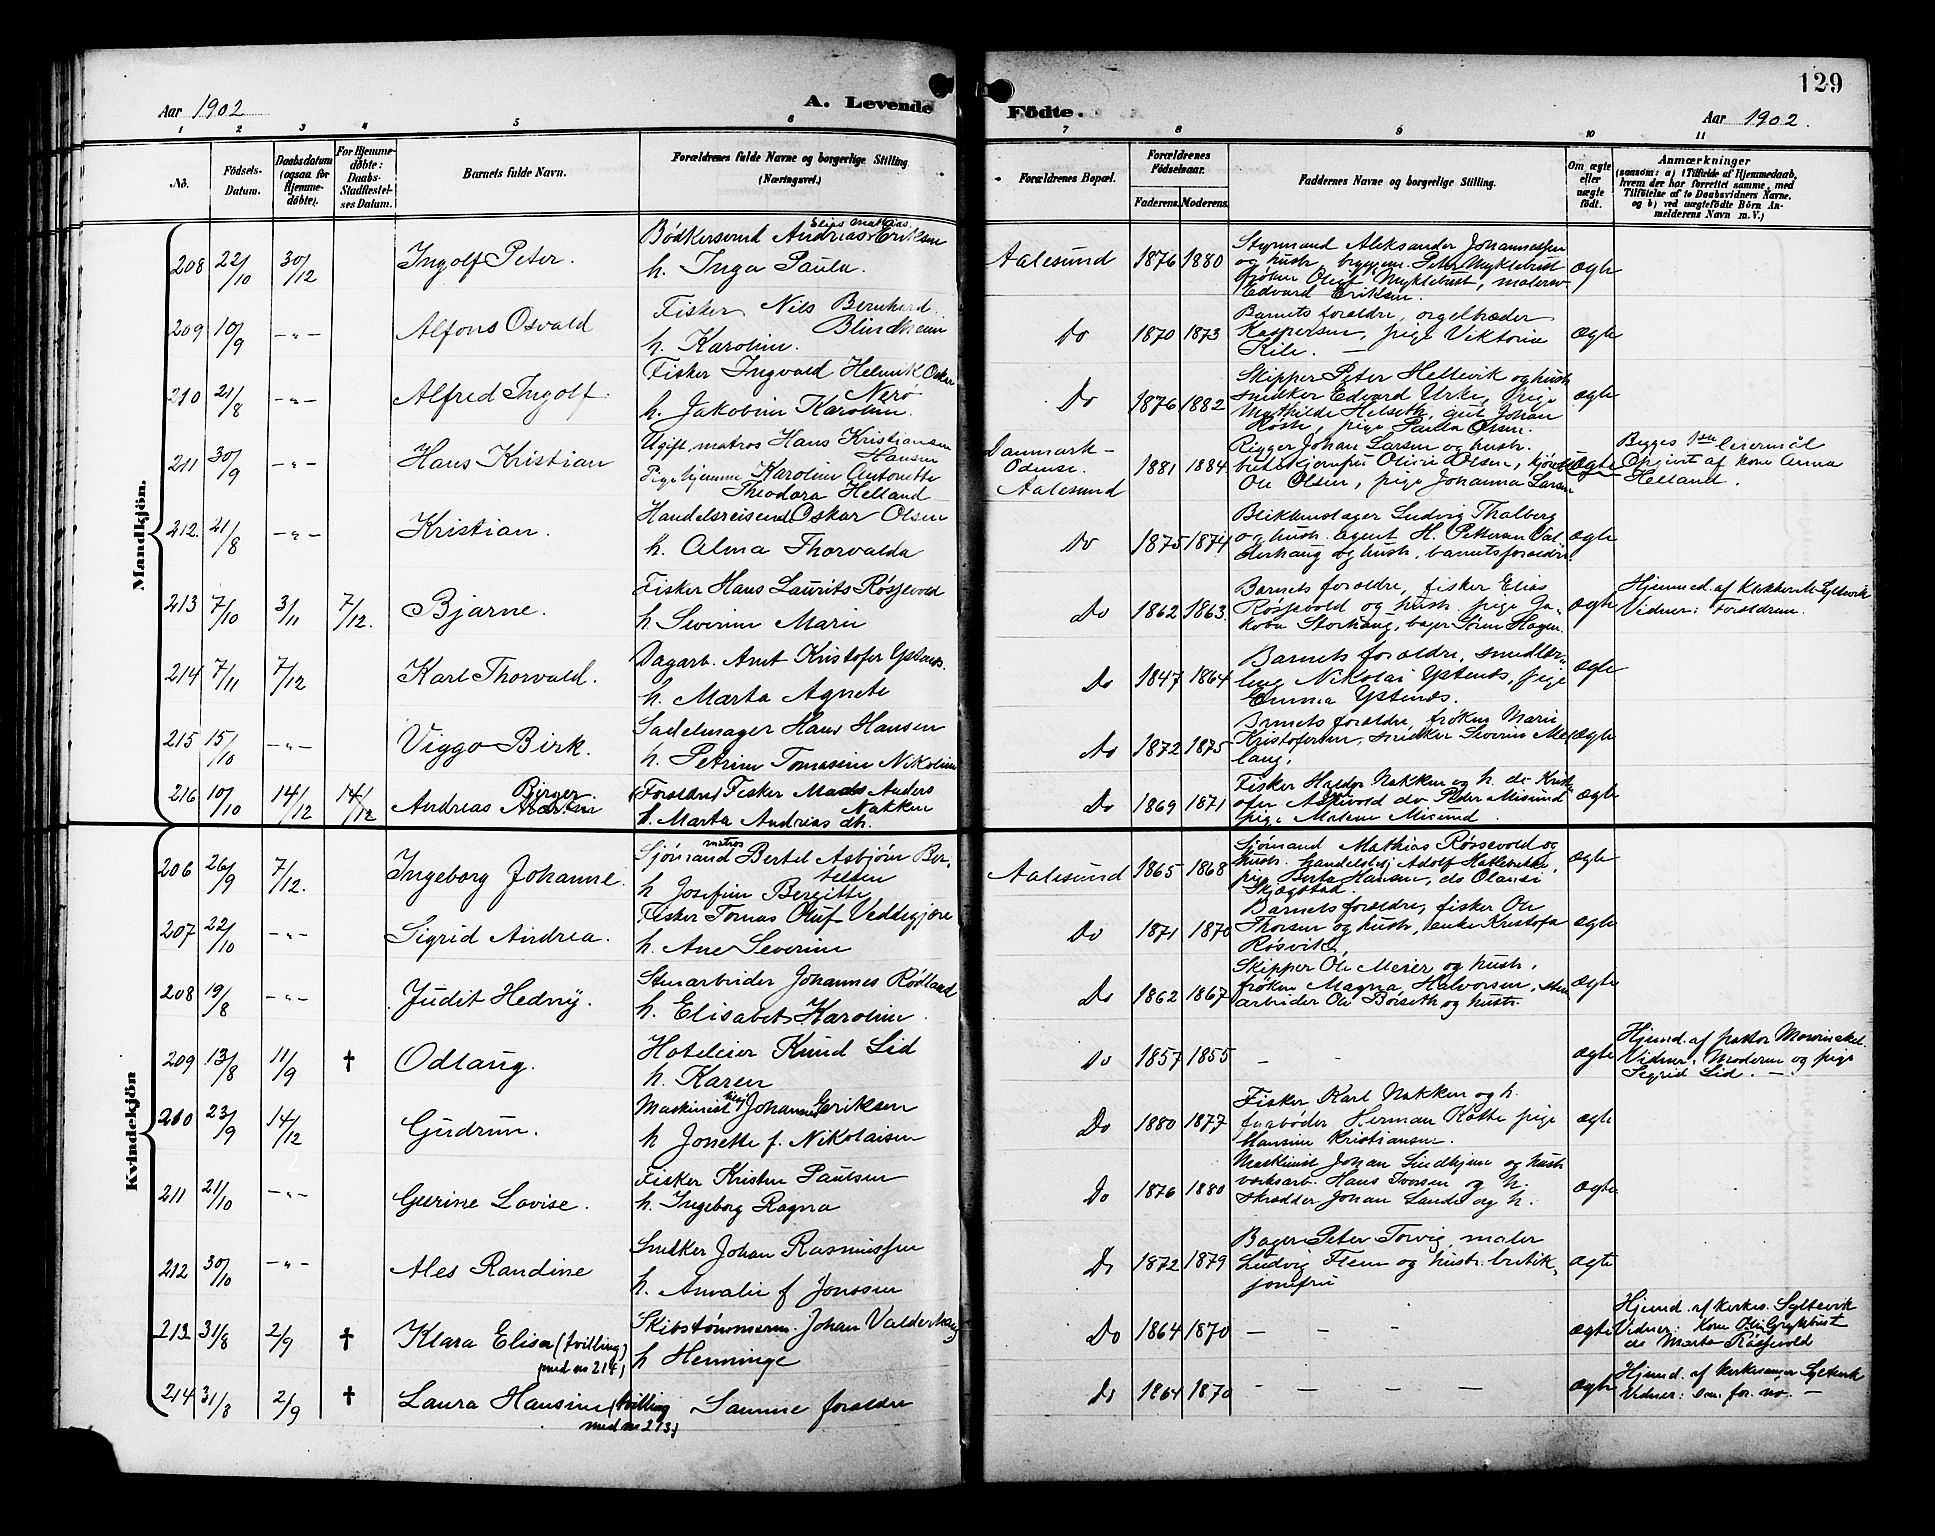 129
Aar 1902
A. Levende Födte.
Aar 1902.
1 2 3 4 5 6 7 8 9 10 11
No.
Födsels-Datum.
Daabsdatum (ogsaa for Hjemmedöbte).
For Hjemmedöbte: Daabs-Stadfestelses Datum.
Barnets fulde Navn.
Forældrenes fulde Navne og borgerlige Stilling (Næringsvei.)
Forældrenes Bopæl.
Forældrenes Födselsaar.
Faderens. Moderens.
Faddernes Navne og borgerlige Stilling.
Om ægte eller uægte födt.
Anmærkninger
(saasom: a) i Tilfælde af Hjemmedaab, hvem der har forrettet samme, med Tilföielse af to Daabsvidners Navne, og b) ved uægtefödte Börn Anmelderens Navn m. V.)
Mandkjön.
208 22/10 30/12 Ingolf Peter.
Bødkersvend Andreas Elias Mathias Eriksen
h. Inga Paula
Aalesund 1876 1880
Styrmand Aleksander Johannessen
og hustr., Peter Myklebust
frøken Myklebust,
Edvard Eriksen.
ægte
209 10/9 -"- Alfons Osvald
Fisker Nils Bernhard
Blindheim
h. Karoline.
Do 1870 1873
Barnets forældre,
Kaspersen, pige Viktoria
ægte
210 21/8 -"- Alfred Ingolf
Fisker Ingvald Henrik Oskar
Nerø
h. Jakobine Karoline.
Do 1876 1882
Skipper Peter Hellevik og hustr.
snedker Edvard Urke, pige
Mathilde Helseth, gut Johan
pige Paula Olsen.
ægte
211 30/9 -"- Hans Kristian
Ugift matros Hans Kristiansen
Hansen
Pige hjemme Karoline Antonette
Theodora Helland
Danmark - Odense.
Aalesund
1881 1884
Rigger Johan Larsen og hustr.
Olsen,
Ole Olsen, pige Johanna Larsen
Begges 1ste leiermål
Opgivet af kone Anna
Helland.
212. 21/8 -"- Kristian.
Handelsreisend. Oskar Olsen
h. Alma Thorvalda
Do 1875 1874
Blikkenslager Ludvig Thalberg
og hustr. agent H. Petterson Valderhaug og hustr., barnets forældre
ægte
213 7/10 3/11 7/12. Bjarne.
Fisker Hans Laurits Røssevold
h Severine Marie
Do 1862 1863.
Barnets forældre, fisker Elias
Røssevold og hustr. pige Jakoba Storhaug, bager Søren Hagen
ægte
Hjemmed. af Klokker M. Syltevik
Vidner: Forældrene.
214 7/11 7/12 Karl Thorvald.
Dagarb. Anet Kristofer Ystenes.
h. Marta Agnete
Do 1847 1864
Barnets forældre,
Nikolai Ystenes, pige
Emma Ystenes.
ægte
215 15/10 -"- Viggo Birk.
Sadelmager Hans Hansen
h. Petrine Tomasine Nikoline
Do 1872 1875
Barnets forældre, frøken Marie
Kristofersen, snedker Severin Meslang.
ægte
216 10/10 14/12 14/12 Andreas Birger
(Forældre) Fisker Mads Anders
Nakken
h. Marta Andreas dtr.
Do 1869 1871
Fisker Haldor Nakken og h. do Kristofer do Peder Misund
pige Malene Misund
ægte
Kvindekjön
206 26/9 7/12. Ingeborg Johanne.
Sjømand matros Bertel Asbjørn Bertelsen
h Josefine Bergitte
Aalesund 1865 1868
Sjømand Mathias Røssevold og
hustr. Adolf
pige Berta Hansen, do Olausi
ægte
207 22/10 -"- Sigrid Andrea.
Fisker Tomas Oluf Veddegjære
h. Ane Severine
Do 1871 1870
Barnets forældre, fisker Ole
Thorsen og hustr., enke Kristofa
Røsvik.
ægte
208 19/8 -"- Judit Hedvig.
Stenarbeider Johannes Rødland
h. Elisabet Karoline.
Do 1862 1867
Skipper Ole Meier og hustr.
frøken Magna Halvorsen, stenarbeider Ole Boiseth og hustr.
ægte
209 13/8 11/9 † Odlaug.
Hoteleier Knud Lid
h. Karen
Do 1857 1855 - -
ægte
Hjemd. af pastor
Vidner: Moderen og pige
Sigrid Lid. -
210 23/9 14/12 Gudrun.
Maskinist Johannes Eriksen
h Jonette f. Nikolaisen
Do 1880 1877
Fisker Karl Nakken og h.
Herman pige
Hansine Kristiansen.
ægte
211 21/10 -"- Gurine Lovise.
Fisker Kristen Paulsen
h. Ingeborg Ragna
Do 1876 1880
Maskinist Johan Lindhjem og hustr
verksarb. Hans Iversen og h.
skrædder Johan Lande og h.
ægte
212 30/10 -"- Ales Randine
Snekker Johan Rasmussen
h. Amalie f Jonssen
Do 1872 1879
Bager Peter Torvig, maler
Ludvig Flem og hustr. butikjomfru
ægte
213 31/8 2/9 † Klara Elisa (tvilling
med no 214)
Skibstømmerm. Johan Valderhaug
h Henninge
Do 1864 1870 - - - -
ægte
Hjemd. af kirkes. Syltevik
Vidner: Kone
do Marta Røssevold
214 31/8 2/9 † Laura Hansine (tvilling
med no 213)
Samme forældre
Do 1864 1870 - - - -
ægte
Hjemd. af kirkesanger Syltevik
Vidner: som for no. -